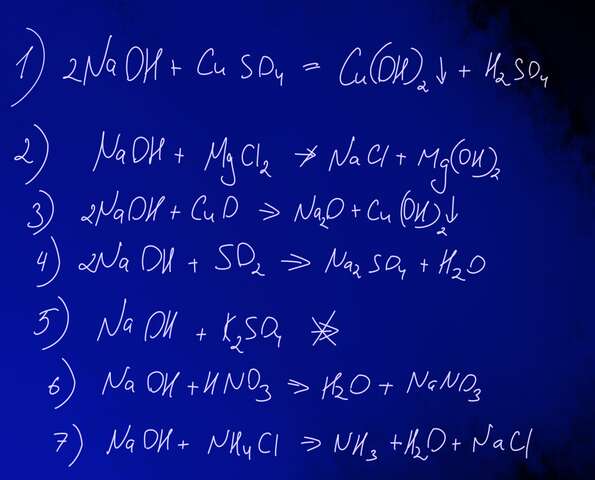 1) 2NaOH + CuSO₄ = Cu(OH)₂↓ + H₂SO₄
2) NaOH + MgCl₂ ↛ NaCl + Mg(OH)₂
3) 2NaOH + CuO ⇒ Na₂O + Cu(OH)₂↓
4) 2NaOH + SO₂ ⇒ Na₂SO₄ + H₂O
5) NaOH + K₂SO₄ ⇏
6) NaOH + HNO₃ ⇒ H₂O + NaNO₃
7) NaOH + NH₄Cl ⇒ NH₃ + H₂O + NaCl